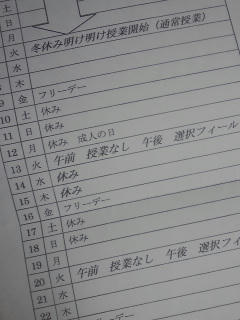 土
日
月
火 冬休み明け明け授業開始（通常授業）
水
8 木
9 金 フリーデー
10 土 休み
11 日 休み
12 月 休み 成人の日
13 火 午前 授業なし 午後 選択フィール
14 水 休み
15 木 休み
16 金 フリーデー
17 土 休み
18 日 休み
19 月
20 火 午前 授業なし 午後 選択フィー
21 水
22 木